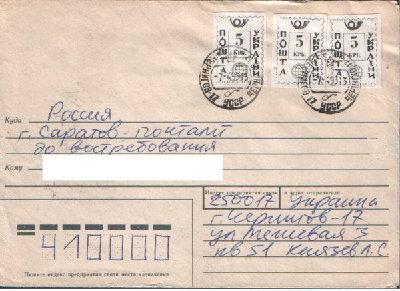 ПОШТА 5 КРБ. УКРАЇНИ
ПОШТА 5 КРБ. УКРАЇНИ
ПОШТА 5 КРБ. УКРАЇНИ
УССР
УССР
Куда Россия
г. Саратов-почтамт
до востребования
Кому
Индекс предприятия связи и адрес отправителя
250017 Украина
г. Чернигов-17
ул Межевая 3
кв 51 Князев Л.С
410000
Пишите индекс предприятия связи места назначения